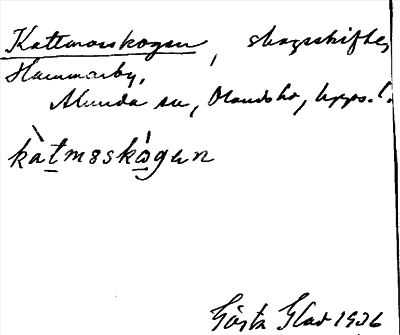 Kattmosskogen, skogsskifte,
Hammarby,
Alunda sn, Olands hd, Upps. l.
kàt̲mo̲skò̲gen
Gösta Glad 1936